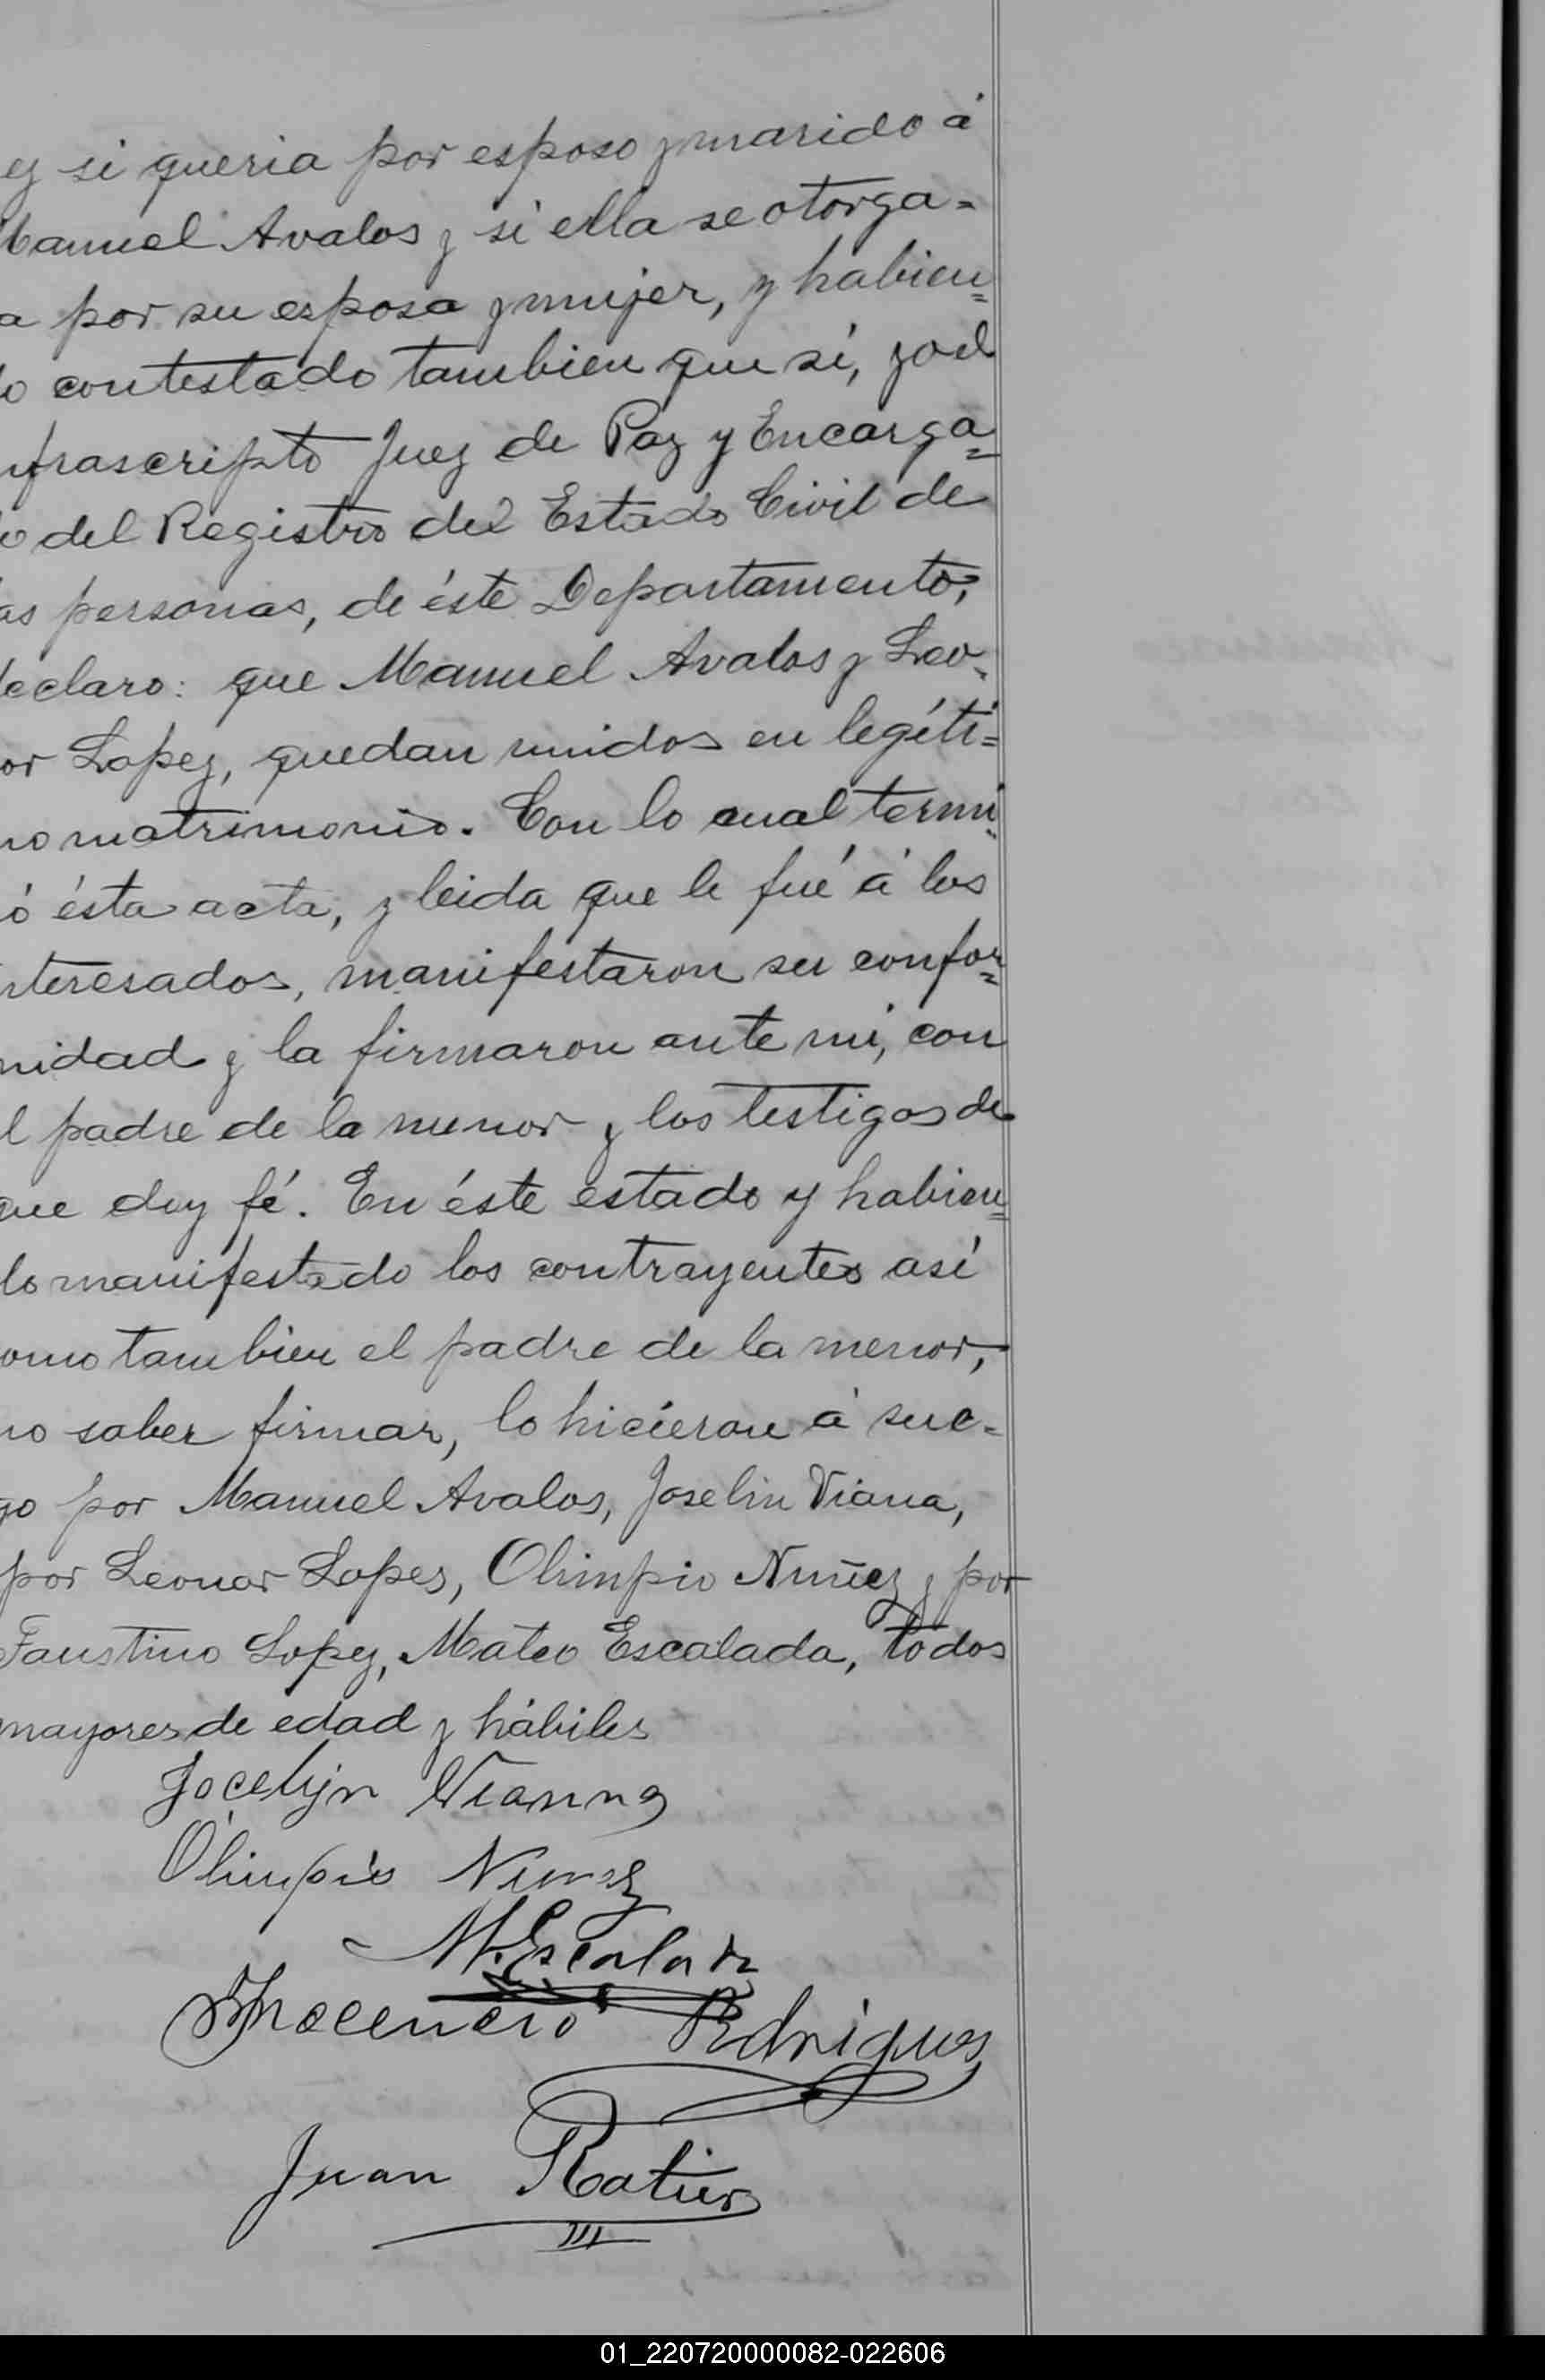 ez si queria por esposo y marido á
Manuel Avalos y si ella se otorga=
a por su esposa y mujer, y habien=
do contestado tambien que sí, yo el
nfrascripto Juez de Paz y Encarga=
do del Registro del Estado Civil de
as personas, de éste Departamento,
declaro: que Manuel Avalos y Leo-
or Lopez, quedan unidos en legíti=
mo matrimonio. Con lo cual termi=
ó ésta acta, y leida que le fué á los
nteresados, manifestaron su confor=
midad y la firmaron ante mi, con
l padre de la menor y los testigos de
que doy fé. En éste estado y habien=
do manifestado los contrayentes así
omo tambien el padre de la menor,
no saber firmar, lo hicieron á rue-
go por Manuel Avalos, Joselin Viana,
por Leonor Lopes, Olimpio Nuñez y por
Faustino Lopez, Mateo Escalada, todos
mayores de edad y hábiles
Jocelyn Vianna
Olimpio Nunez
M. Escalada
Inocencio Rdrigues
Juan Ratier
01_220720000082-022606